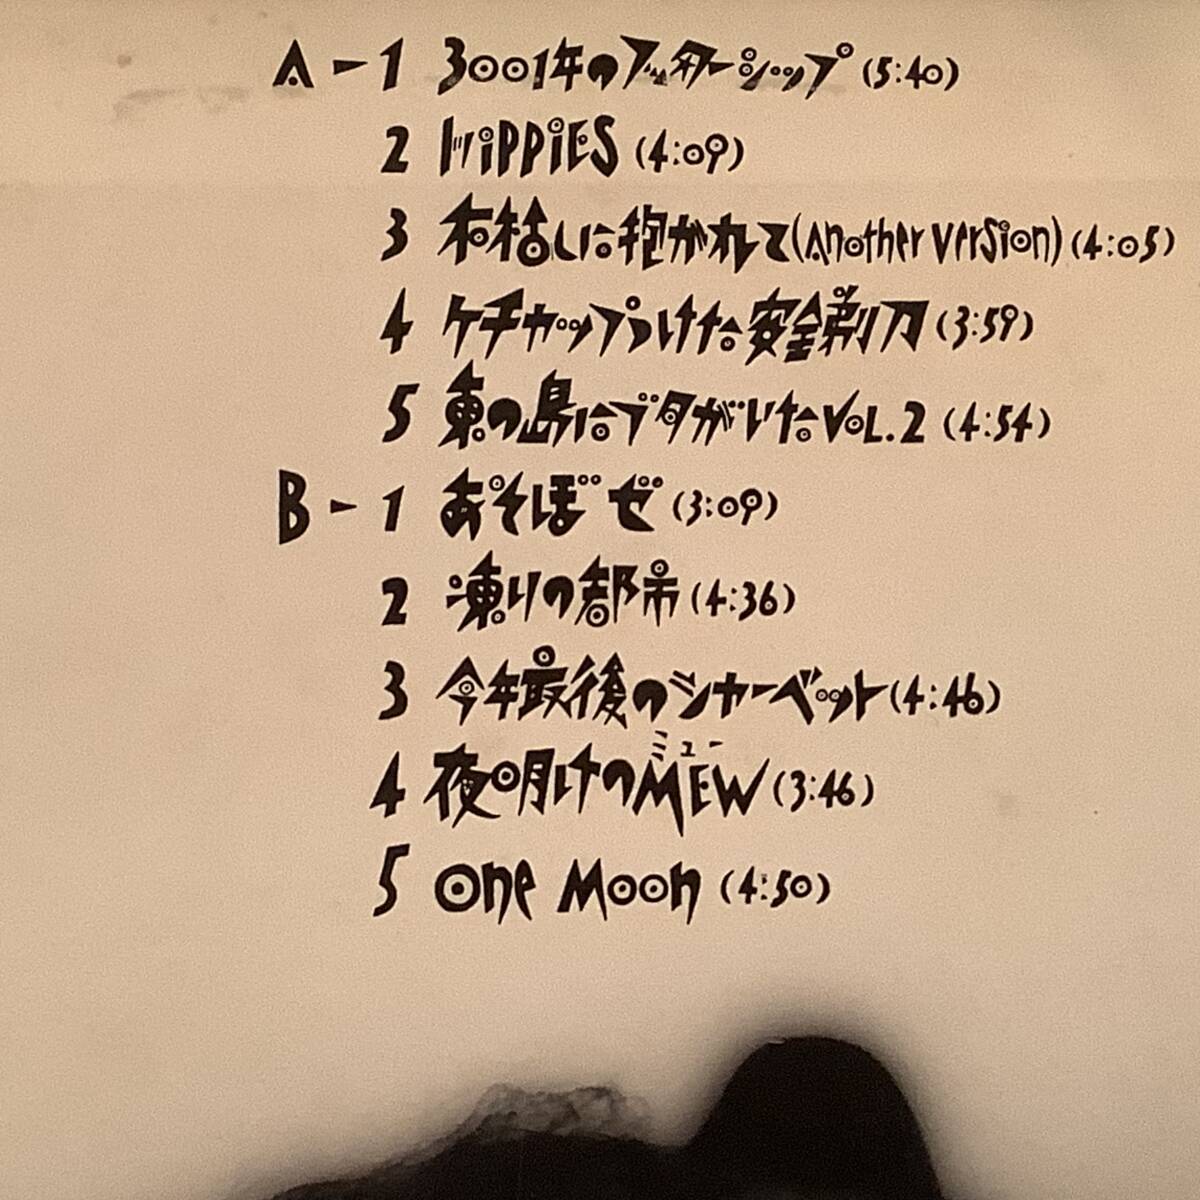 A-1 3001年のスターシップ (5:40)
2 HiPPiES (4:09)
3 木枯しに抱かれて(Another version) (4:05)
4 ケチャップうけた安全剃刀 (3:59)
5 東の島にブタがいたVOL.2 (4:54)
B-1 あそぼぜ (3:09)
2 凍りの都市 (4:36)
3 今年最後のシャーベット(4:46)
ミュー
4 夜明けのMEW (3:46)
5 One Moon (4:50)